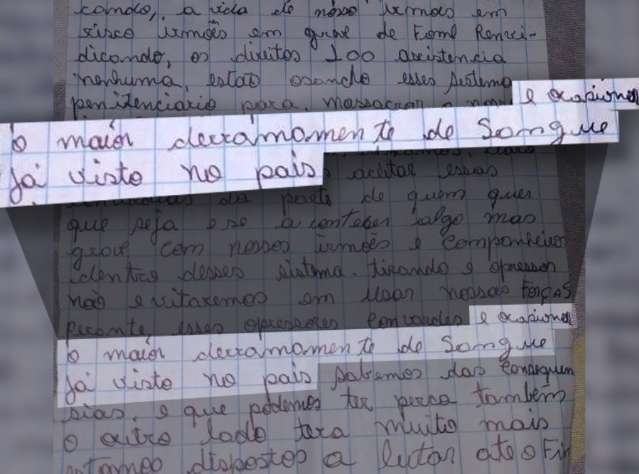 a vida de nosso irmãos em
risco irmãos em greve de Fome Reinvi-
dicando, os direitos 100 asistencia
nenhuma, estão esses sistema
penitenciario para, massacrar e ocasionar
o maiór derrámamente de Sangue
já visto no país
aceitar essas
da parte de quem quer
que seja e se acontecer algo mas
grave com nossos irmãos e companheiros
identro desses sistema. tirando e opressor
não evitaremos em usar nossas FORÇAS
esses opressores e ocasionar
o maiór derrámamente de Sangue
já visto no país sabemos das Consequen
sias, e que podemos ter perca também
o outro lado tera muito mais
estamos dispostos a lutar até o Fim